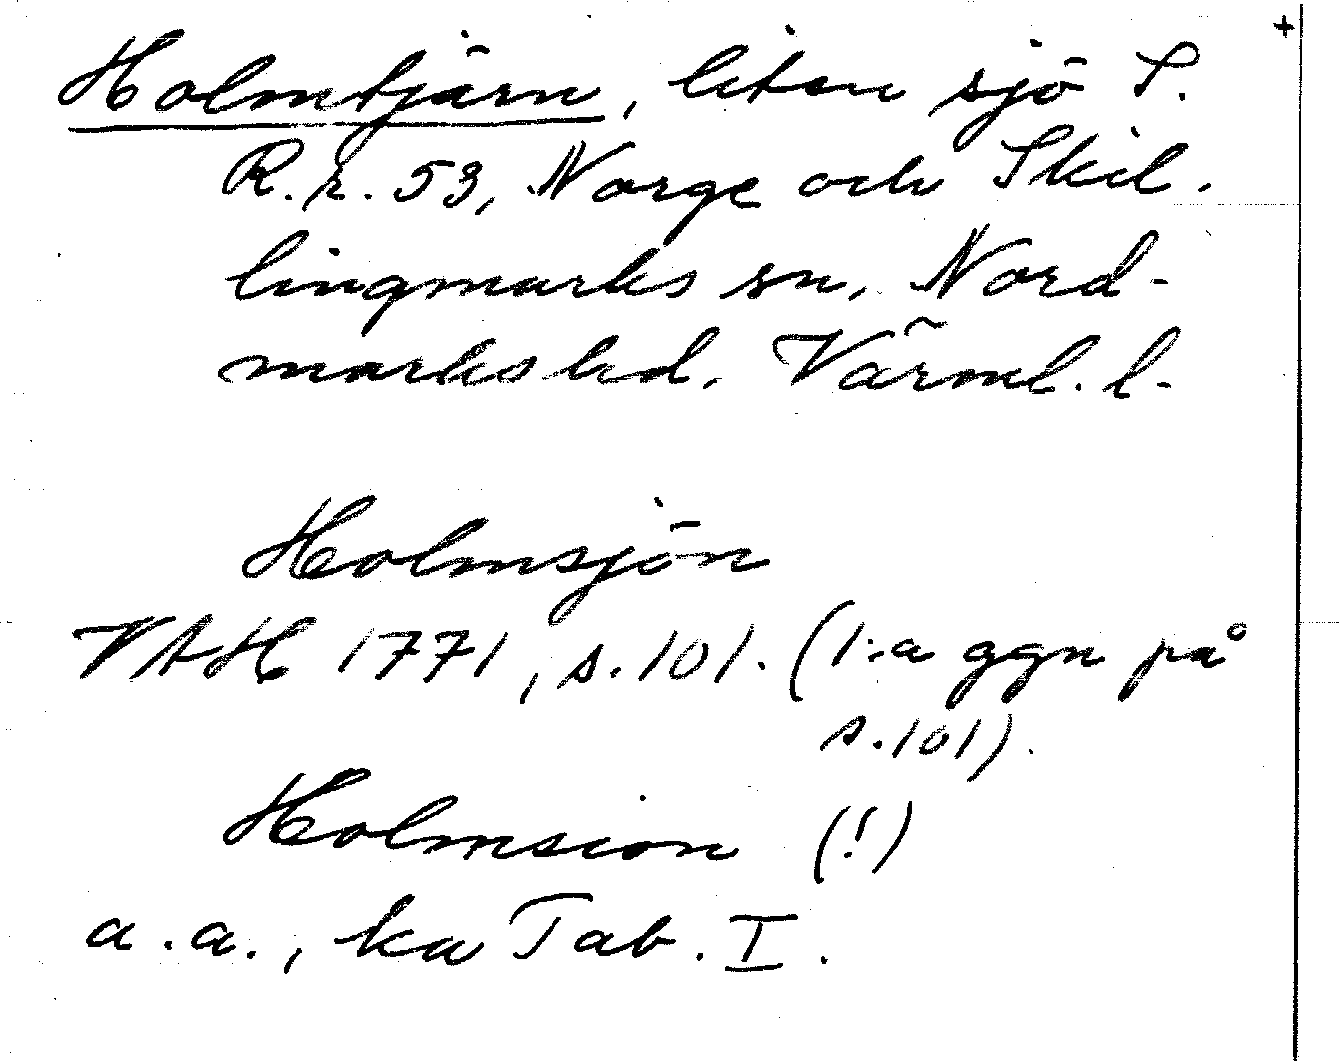 +
Holmtjärn, liten sjö S.
R.r. 53, Norge och Skil-
lingmarks sn, Nord-
marks hd. Värml. l.
Holmsjön
VAH 1771, s. 101. (1:a ggn på
s. 101).
Holmsion (!)
a.a., ka Tab. I.